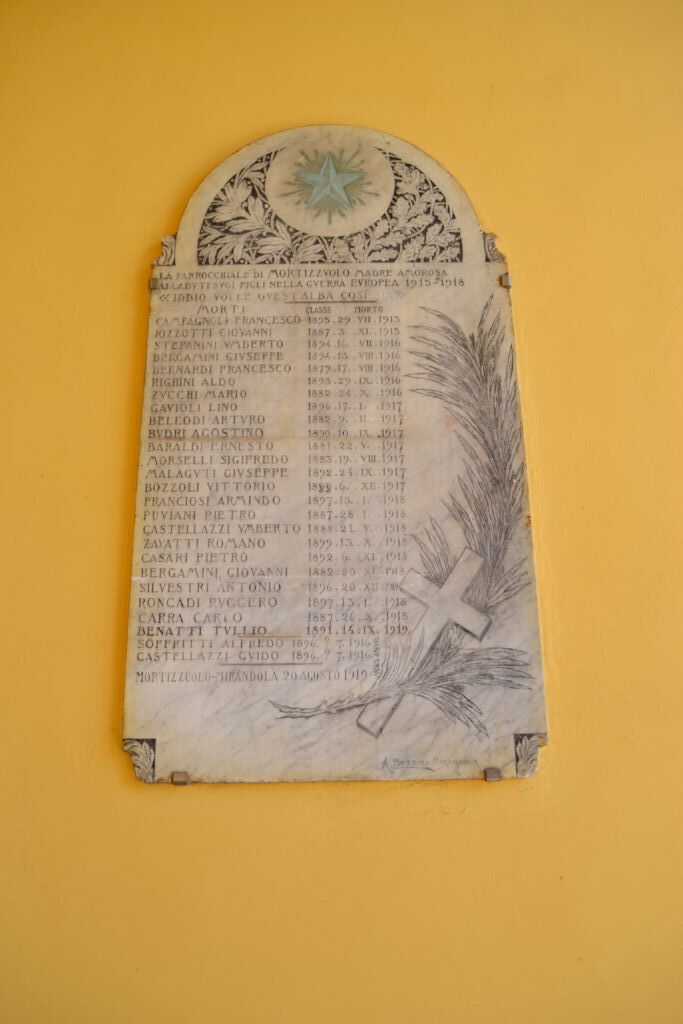 LA PARROCCHIALE DI MORTIZZVOLO MADRE AMOROSA
AI CADVTI SVOI FIGLI NELLA GVERRA EVROPEA 1915-1918
« IDDIO VOLLE QVEST'ALBA COSÌ
MORTI CLASSE MORTO
CAMPAGNOLI FRANCESCO 1895.29.VII.1915
RIZZOTTI GIOVANNI 1887.3.XI.1915
STEFANINI VMBERTO 1894.16.VII.1916
BERGAMINI GIVSEPPE 1894.13.VIII.1916
BERNARDI FRANCESCO 1879.17.VIII.1916
RIGHINI ALDO 1893.29.IX.1916
ZVCCHI MARIO 1882.24.X.1916
GAVIOLI LINO 1896.17.I.1917
BELLODI ARTVRO 1882.9.II.1917
BVDRI AGOSTINO 1890.10.IX.1917
BARALDI ERNESTO 1881.22.V.1917
MORSELLI SIGIFREDO 1883.19.VIII.1917
MALAGVTI GIVSEPPE 1892.24.IX.1917
BOZZOLI VITTORIO 6.XII.1917
FRANCIOSI ARMINDO 1897.13.I.1918
PVVIANI PIETRO 1887.28.I.1918
CASTELLAZZI VMBERTO 1888.21.V.1918
ZAVATTI ROMANO 1899.13.X.1918
CASARI PIETRO 1892.6.XI.1918
BERGAMINI GIOVANNI 1882.20.XI.1918
SILVESTRI ANTONIO 1896.20.XII.1918
RONCADI RVGGERO 1897.13.I.1918
CARRA CARLO 1887.26.X.1918
BENATTI TVLLIO 1891.14.IX.1919
SOFFRITTI ALFREDO 1896.9.7.1916
CASTELLAZZI GUIDO 1896.9.7.1916
MORTIZZUOLO-MIRANDOLA 20 AGOSTO 1919
MIRANDOLA